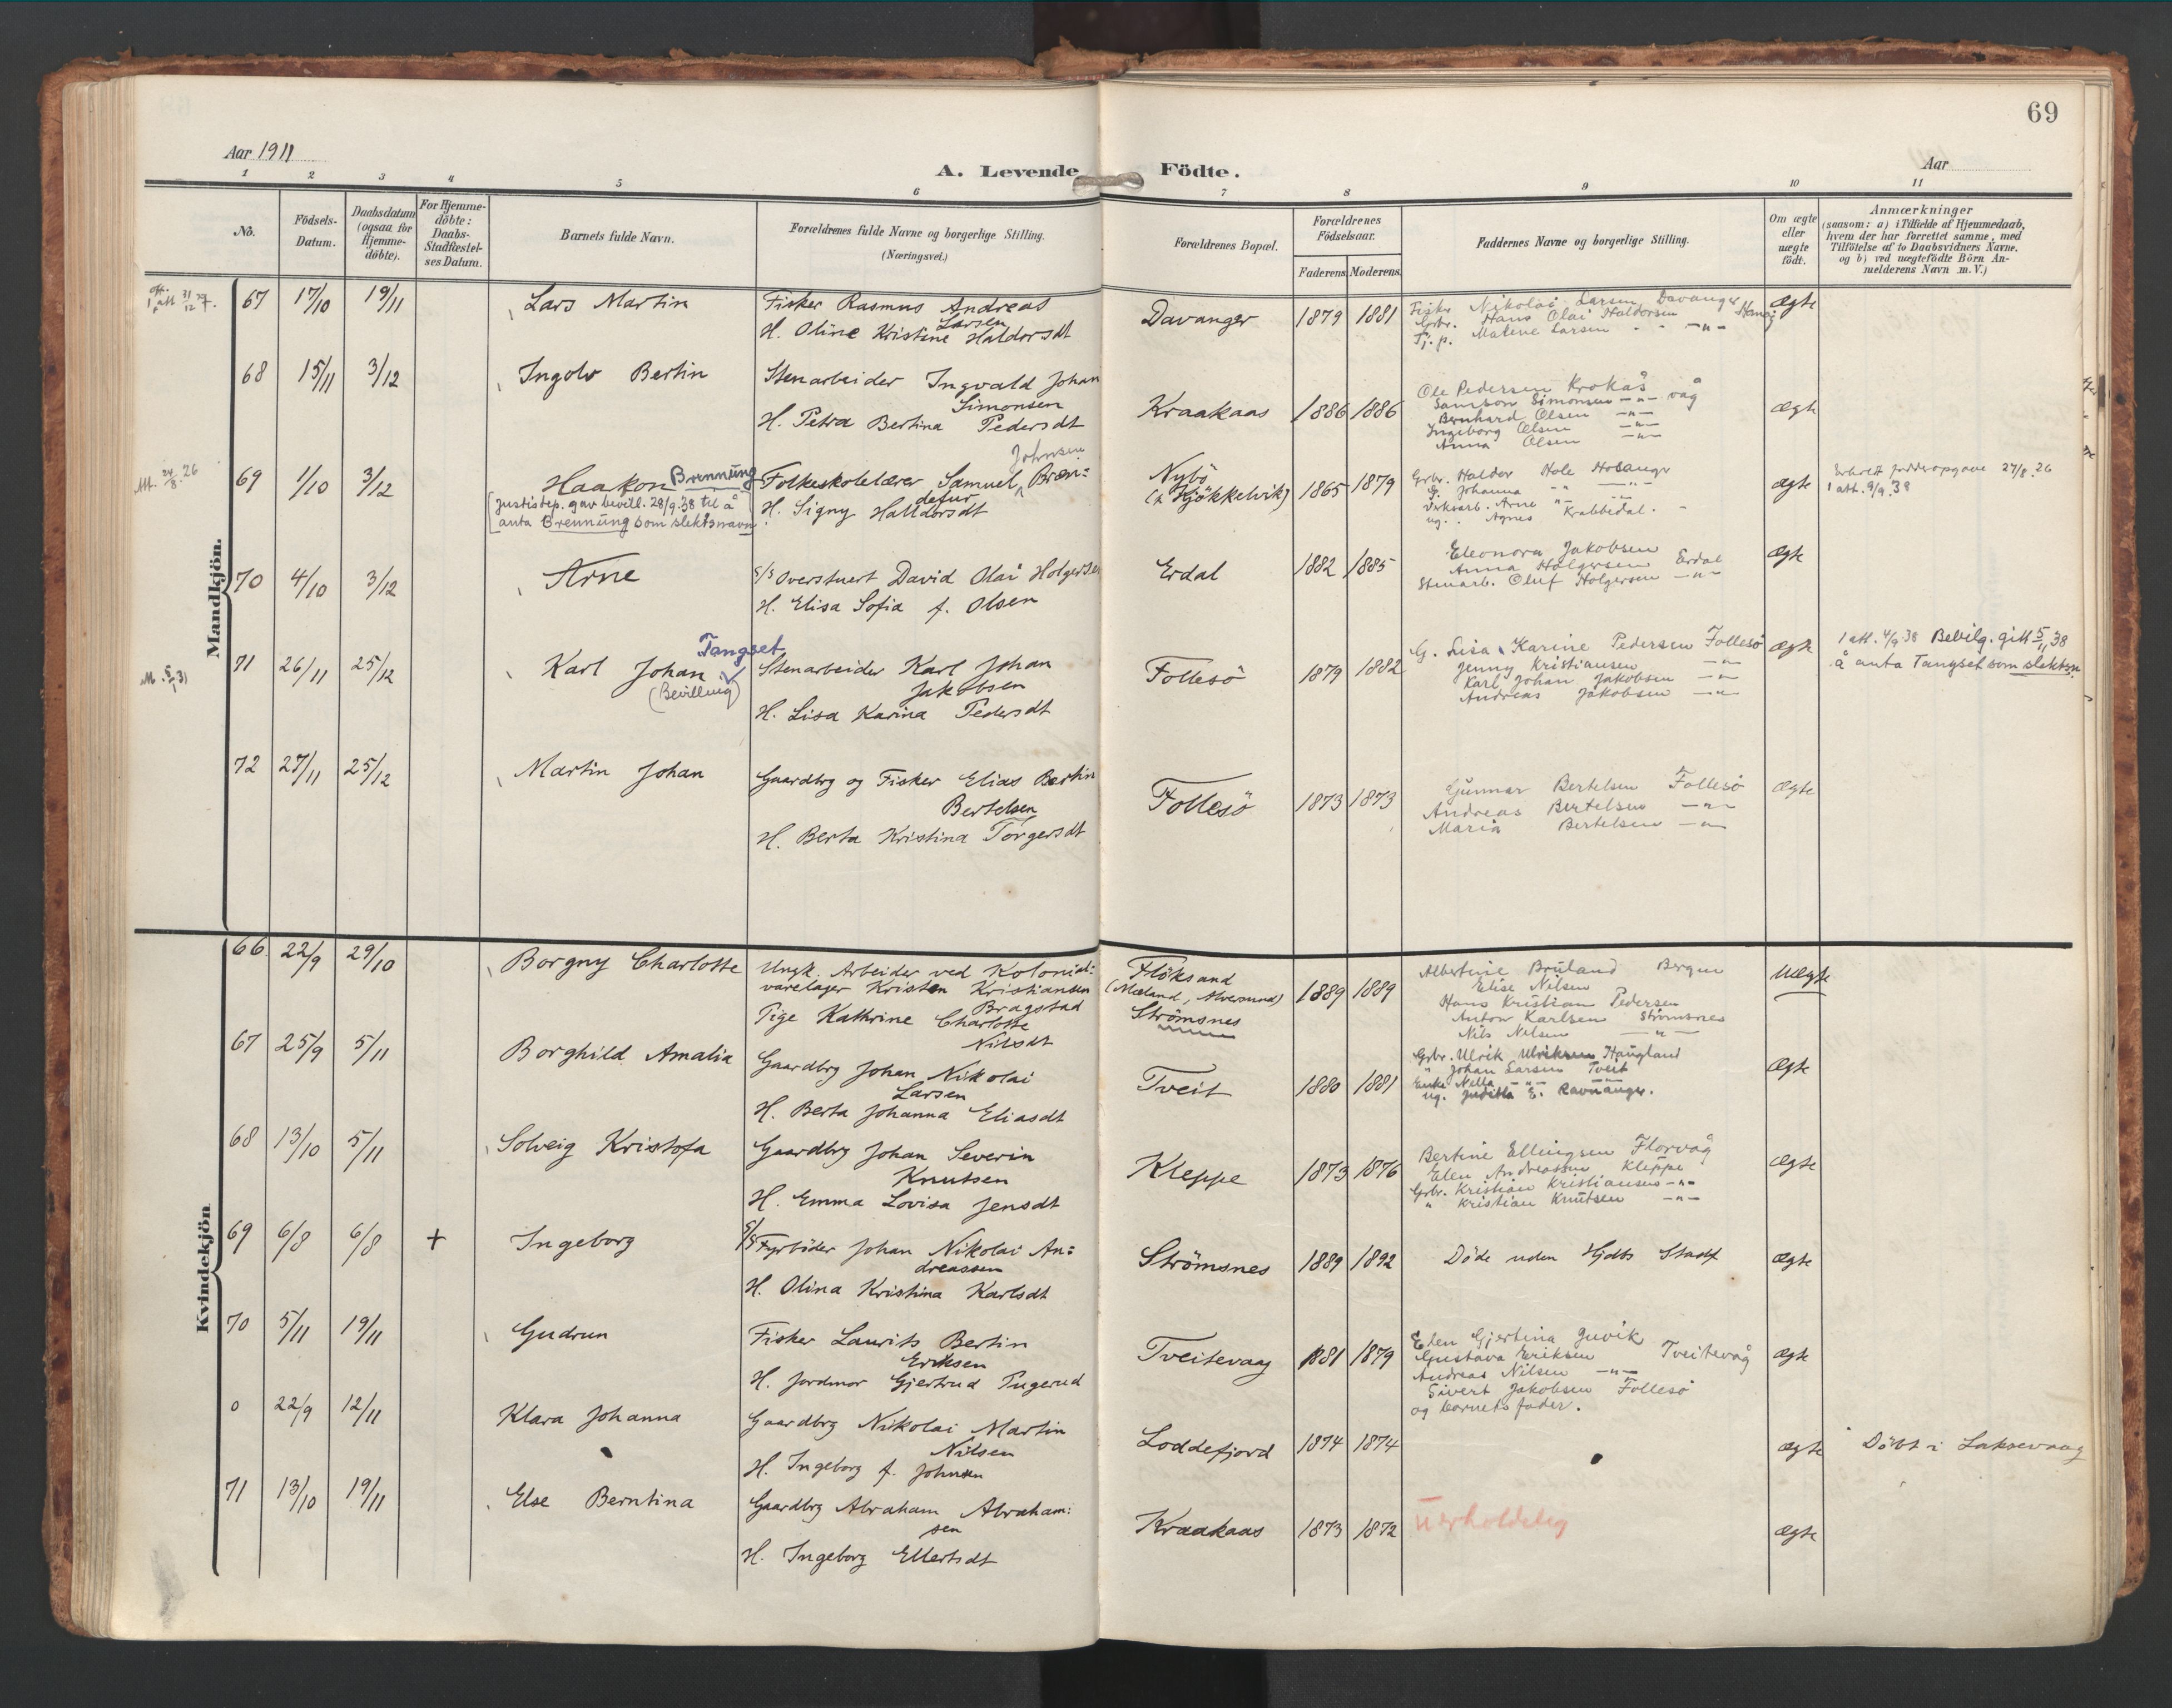 69
Aar 1911
A. Levende Födte.
Aar
1 2 3 4 5 6 7 8 9 10 11
No.
Födsels-Datum.
Daabsdatum (ogsaa for Hjemme-döbte).
For Hjemme-döbte: Daabs-Stadfæstel-ses Datum.
Barnets fulde Navn.
Forældrenes fulde Navne og borgerlige Stilling. (Næringsvei.)
Forældrenes Bopæl.
Forældrenes Födselsaar.
Faderens Moderens
Faddernes Navne og borgerlige Stilling.
Om ægte eller uægte födt.
Anmærkninger
(saasom: a) i Tilfælde af Hjemmedaab, hvem der har forrettet samme, med Tilföielse af to Daabsvidners Navne, og b) ved uægtefödte Börn An-melderens Navn m. V.)
Mandkjön.
67 17/10 19/11 Lars Martin
Fisker Rasmus Andreas
Larsen
H. Oline Kristine Haldorsdt
Davanger 1879 1881
Fisker Nikolai Larsen Davanger
Grbr. Hans Olai Haldorsen
Tj. p. Matene Larsen -"-
Ægte
68 15/11 3/12 Ingolv Bertin
Stenarbeider Ingvald Johan
Simonsen
H. Petra Bertina Pedersdt
Kraakaas 1886 1886
Ole Pedersen Krokås
Samson Simonsen -"- våg
Bernhard Olsen -"-
Ingeborg Olsen -"-
Anna Olsen -"-
ægte
Att. 24/8 26
69 1/10 3/12 Haakon Brennüng
[Justisdep. gav bevill. 28/9.38 til å
anta Brennüng som slektsnavn]
Johnsen
Folkeskolelærer Samuel Bren=
H. Signy Halldorsdt
Nybö
(h Kjökkelvik) 1865 1879
Grbr. Haldor Hole Hosanger
G. Johanna " -"-
Virksarb. Arne "
ug. Agnes Krabbedal.
ægte
27/8.26
1 att. 9/9.38
70 4/10 3/12 Arne
S/S Overstuert David Olai Holgersen
H. Elisa Sofia f. Olsen
Erdal 1882 1885
Eleonora Jakobsen
Anna Holgersen Erdal
Stenarb. Oluf Holgersen -"-
Ægte
71 26/11 25/12 Karl Johan Tangset
(Bevilling)
Stenarbeider Karl Johan
Jakobsen
H. Lisa Karina Pedersdt
Follesö 1879 1882
G. Lisa Karine Pedersen Follesö
Jenny Kristiansen -"-
Karl Johan Jakobsen -"-
Andreas Jakobsen -"-
ægte
1 att. 4/9 38 Bevilg. gitt 5/11 38
å anta Tangset som slektsn.
72 27/11 25/12 Martin Johan
Gaardbrg og Fisker Elias Bertin
Bertelsen
H. Berta Kristina Torgersdt
Follesö 1873 1873
Gunnar Bertelsen Follesö
Andreas Bertelsen -"-
Maria Bertelsen -"-
Ægte
Kvindekjön
66 22/9 29/10 Borgny Charlotte
Ungk. Arbeider ved Kolonial=
varelager Kristen Kristiansen
Bragstad
Pige Kathrine Charlotte
Nilsdt
Flöksand
(Mæland, Alversund)
Strömsnes
1889 1889
Albertine Brüland Bergen
Elise Nilsen
Hans Kristian Pedersen
Anton Karlsen Strömsnes
Nils Nilsen -"-
Uægte
67 25/9 5/11 Borghild Amalia
Gaardbrg Johan Nikolai
Larsen
H. Berta Johanna Eliasdt
Tveit 1880 1881
Grbr. Ulrik Ulriksen Haugland
" Johan Larsen Tveit
Enke Nilla -"-
ug. Juditha E. Ravnanger.
Ægte
68 13/10 5/11 Solveig Kristofa
Gaardbrg Johan Severin
Knutsen
H. Emma Lovisa Jensdt
Kleppe 1873 1876
Bertine Ellingsen Florvåg
Elen Andreassen Kleppe
Grbr. Kristian Kristiansen -"-
" Kristian Knutsen -"-
Ægte
69 6/8 6/8 + Ingeborg
S/S Fyrböder Johan Nikolai An=
dreassen
H. Olina Kristina Karlsdt
Strömsnes 1889 1892
Döde uden Hjdb Stadf
Ægte
70 5/11 19/11 Gudrun
Fisker Laurits Bertin
Eriksen
H. Jordmor Gjertrud Ingerud
Tveitevaag 1881 1879
Elen Gjertina Juvik
Gustava Eriksen Tveitevåg
Andreas Nilsen -"-
Sivert Jakobsen Follesö
og barnets fader.
Ægte
0 22/9 12/11 Klara Johanna
Gaardbrg Nikolai Martin
Nilsen
H. Ingeborg f. Johnsen
Loddefjord 1874 1874
ægte
Döbt i Laksevaag
71 13/10 19/11 Else Berntina
Gaardbrg Abraham Abraham=
sen
H. Ingeborg Ellertsdt
Kraakaas 1873 1872
Uerholdelig
ægte